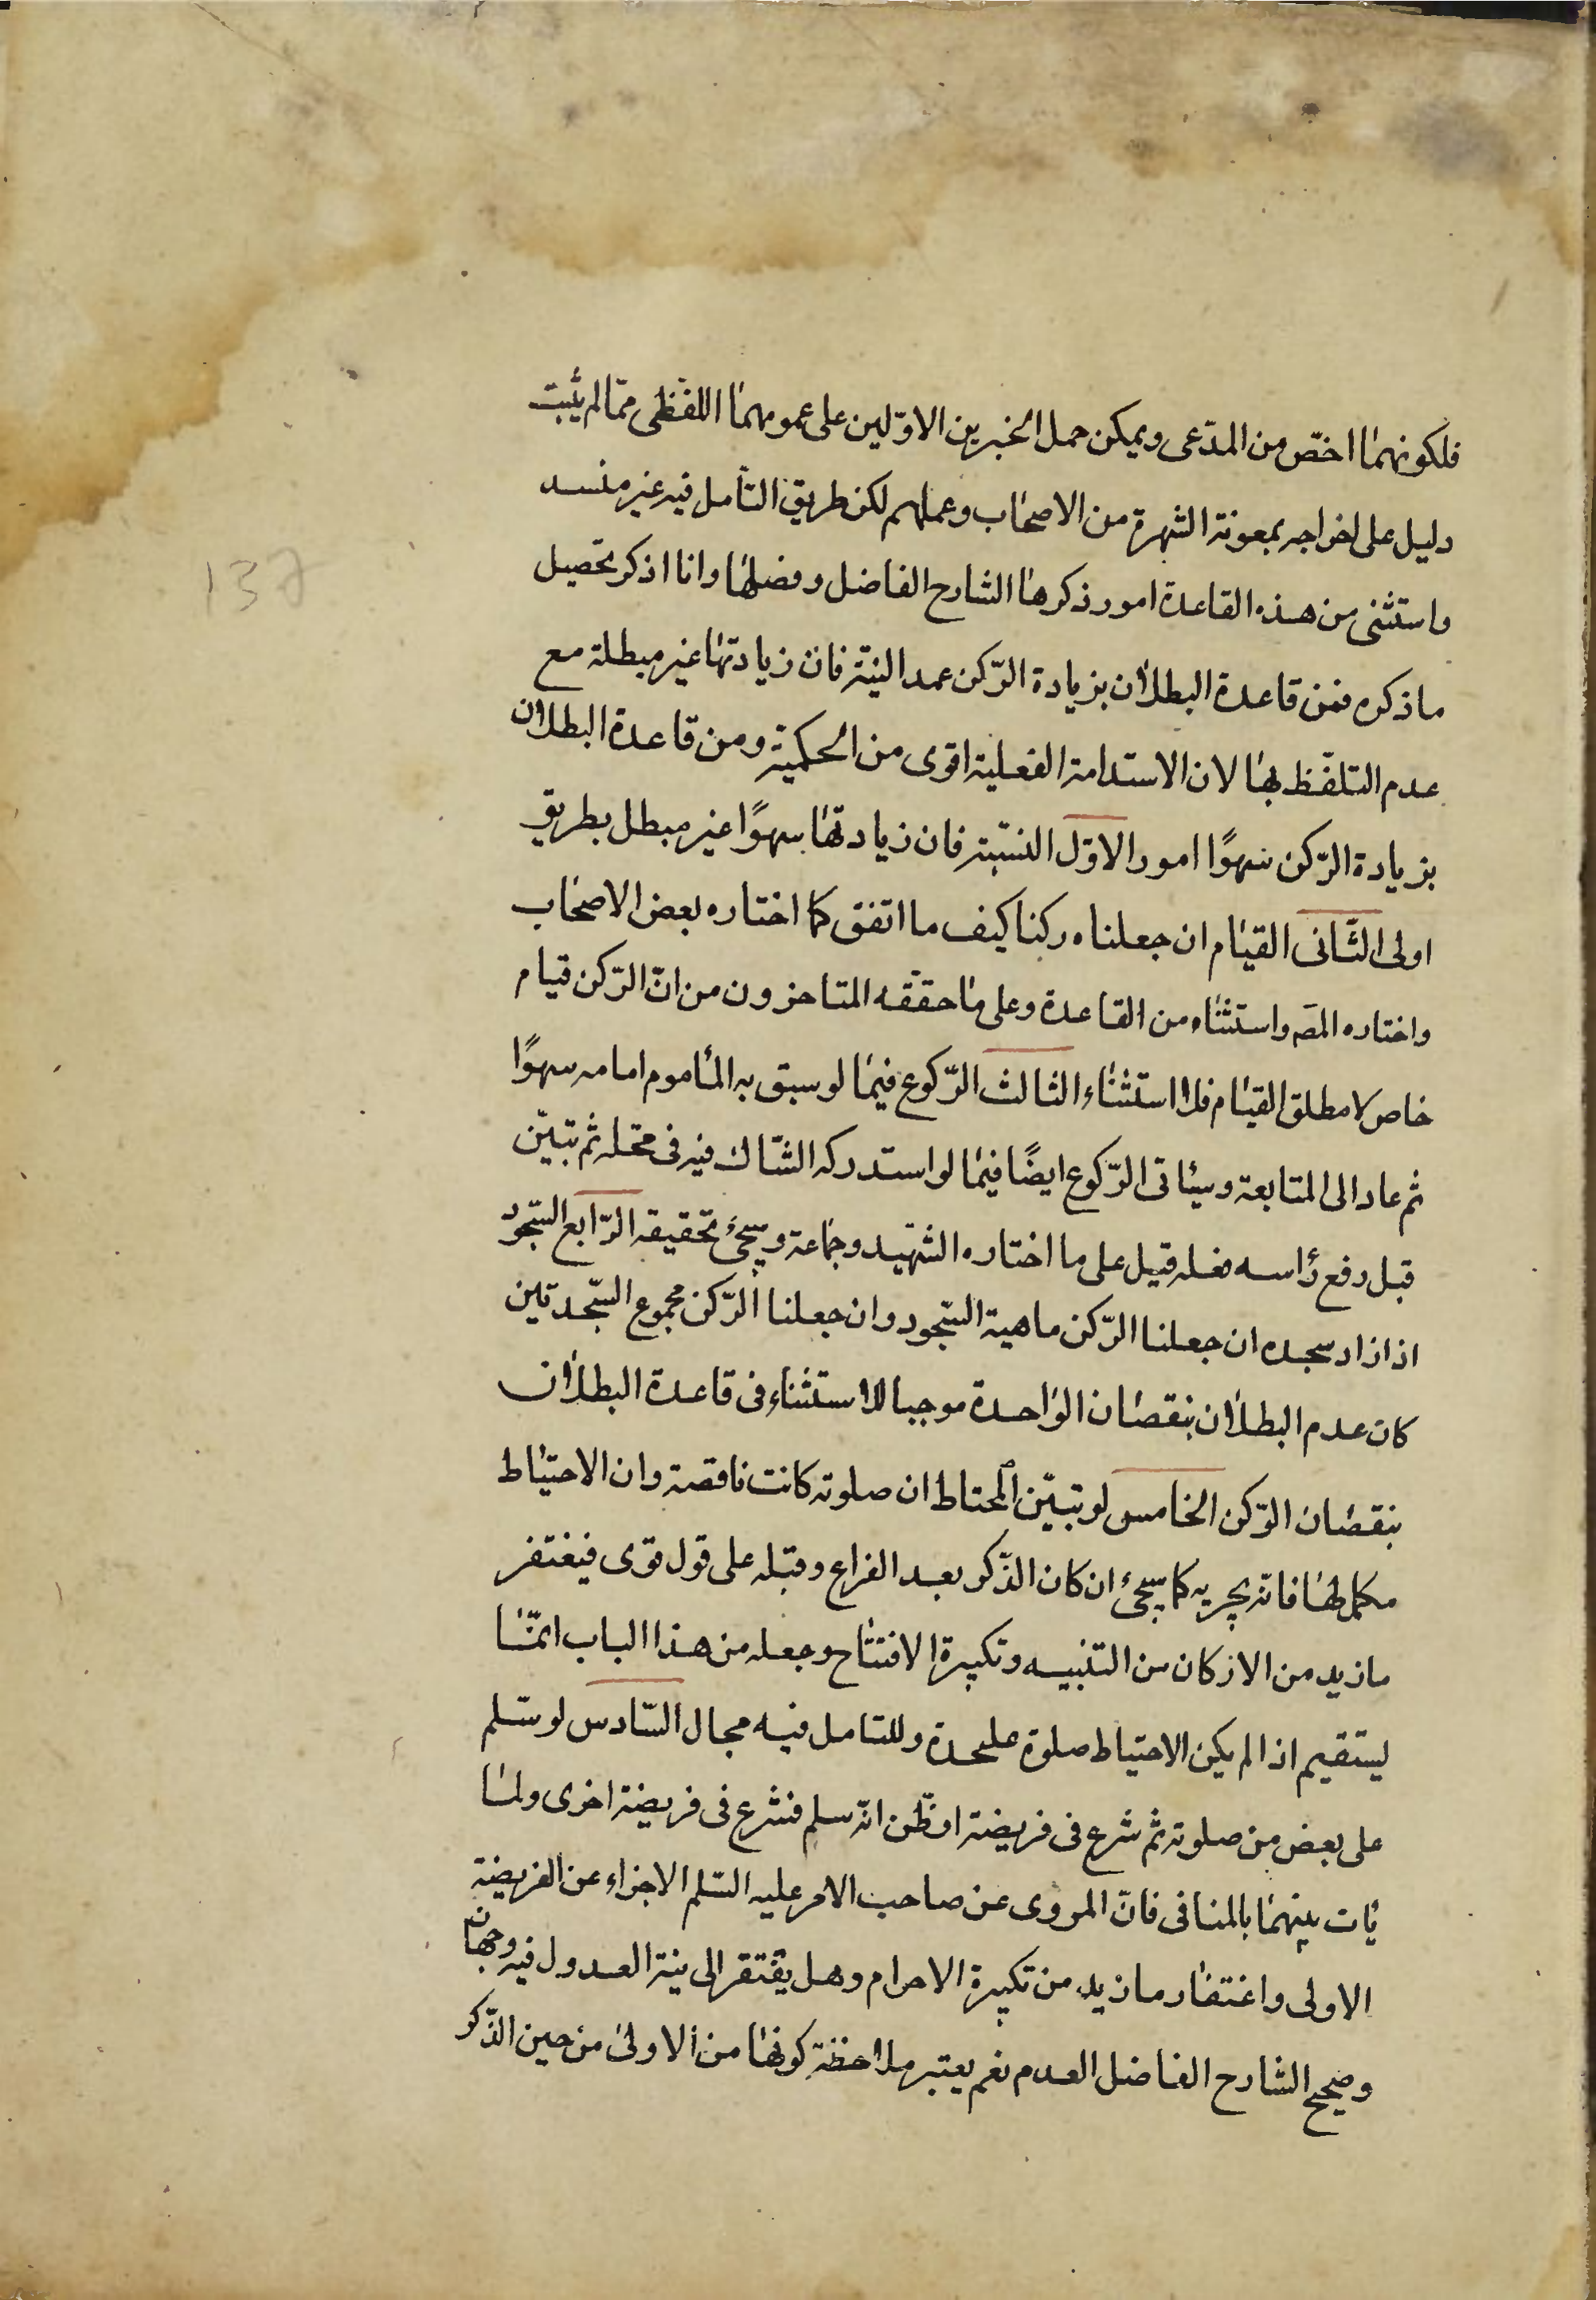 فلكونهما اخصّ من المدّعى ويمكن حمل الخبرين الاوّلين على عمومهما اللفظى ممّا لم يثبت
دليل على اخراجه بمعونة الشهرة من الاصحاب وعملهم لكن طريق التأمل فيه غير منسد
واستثنى من هذه القاعدة امور ذكرها الشارح الفاضل وفصلها وانا اذكر تحصيل
ما ذكره فمن قاعدة البطلان بزيادة الرّكن عمد النيّة فان زيادتها غير مبطلة مع
عدم التلفّظ بها لان الاستدامة الفعلية اقوى من الحكميّة ومن قاعدة البطلان
بزيادة الرّكن سهوًا امور الاوّل النيّة فان زيادتها سهوًا غير مبطل بطريق
اولى الثّانى القيام ان جعلناه ركنا كيف ما اتفق كما اختاره بعض الاصحاب
واختاره المصَ واستثناه من القاعدة وعلى ما حققه المتاخرون من انّ الرّكن قيام
خاص لا مطلق القيام فلا استثناء الثالث الرّكوع فيما لو سبق به المأموم امامه سهوًا
ثم عاد الى المتابعة وسيئاتى الرّكوع ايضًا فيما لو استدركه الشّاك فيه فى محّله ثم تبيّن
قبل رفع رأسه فعله قيل على ما اختاره الشّهيد وجماعة وسيجئ تحقيقه الرّابع السّجود
اذا زاد سجده ان جعلنا الرّكن ماهية السّجود وان جعلنا الرّكن مجموع السّجدتين
كان عدم البطلان بنقصان الواحدة موجبا للاستثناء فى قاعدة البطلان
بنقصان الرّكن الخامس لو تبيّن للمحتاط ان صلوته كانت ناقصة وان الاحتياط
مكمل لها فانّه يجزيه كما سيجئ ان كان الذّكر بعد الفراغ وقبله على قول قوى فيغتفر
ما زيد من الاركان من التنبيه وتكبيرة الافتتاح وجعله من هذا الباب انمّا
ليستقيم اذا لم يكن الاحتياط صلوة عليحدة وللتامل فيه مجال السّادس لو سّلم
على بعض من صلوته ثم شرع فى فريضة او ظّن انّه سلم فشرع فى فريضة اخرى ولما
يأت بينهما بالمنافى فانّ المروى عن صاحب الامر عليه السّلم الاجزاء عن الفريضة
الاولى واغتفار ما زيد من تكبيرة الاحرام وهل يفتقر الى نية العدول فيه وجهان
وصحيح الشارح الفاضل العدم نعم يعتبر ملاحظة كونها من الاولى من حين الذّكر
137